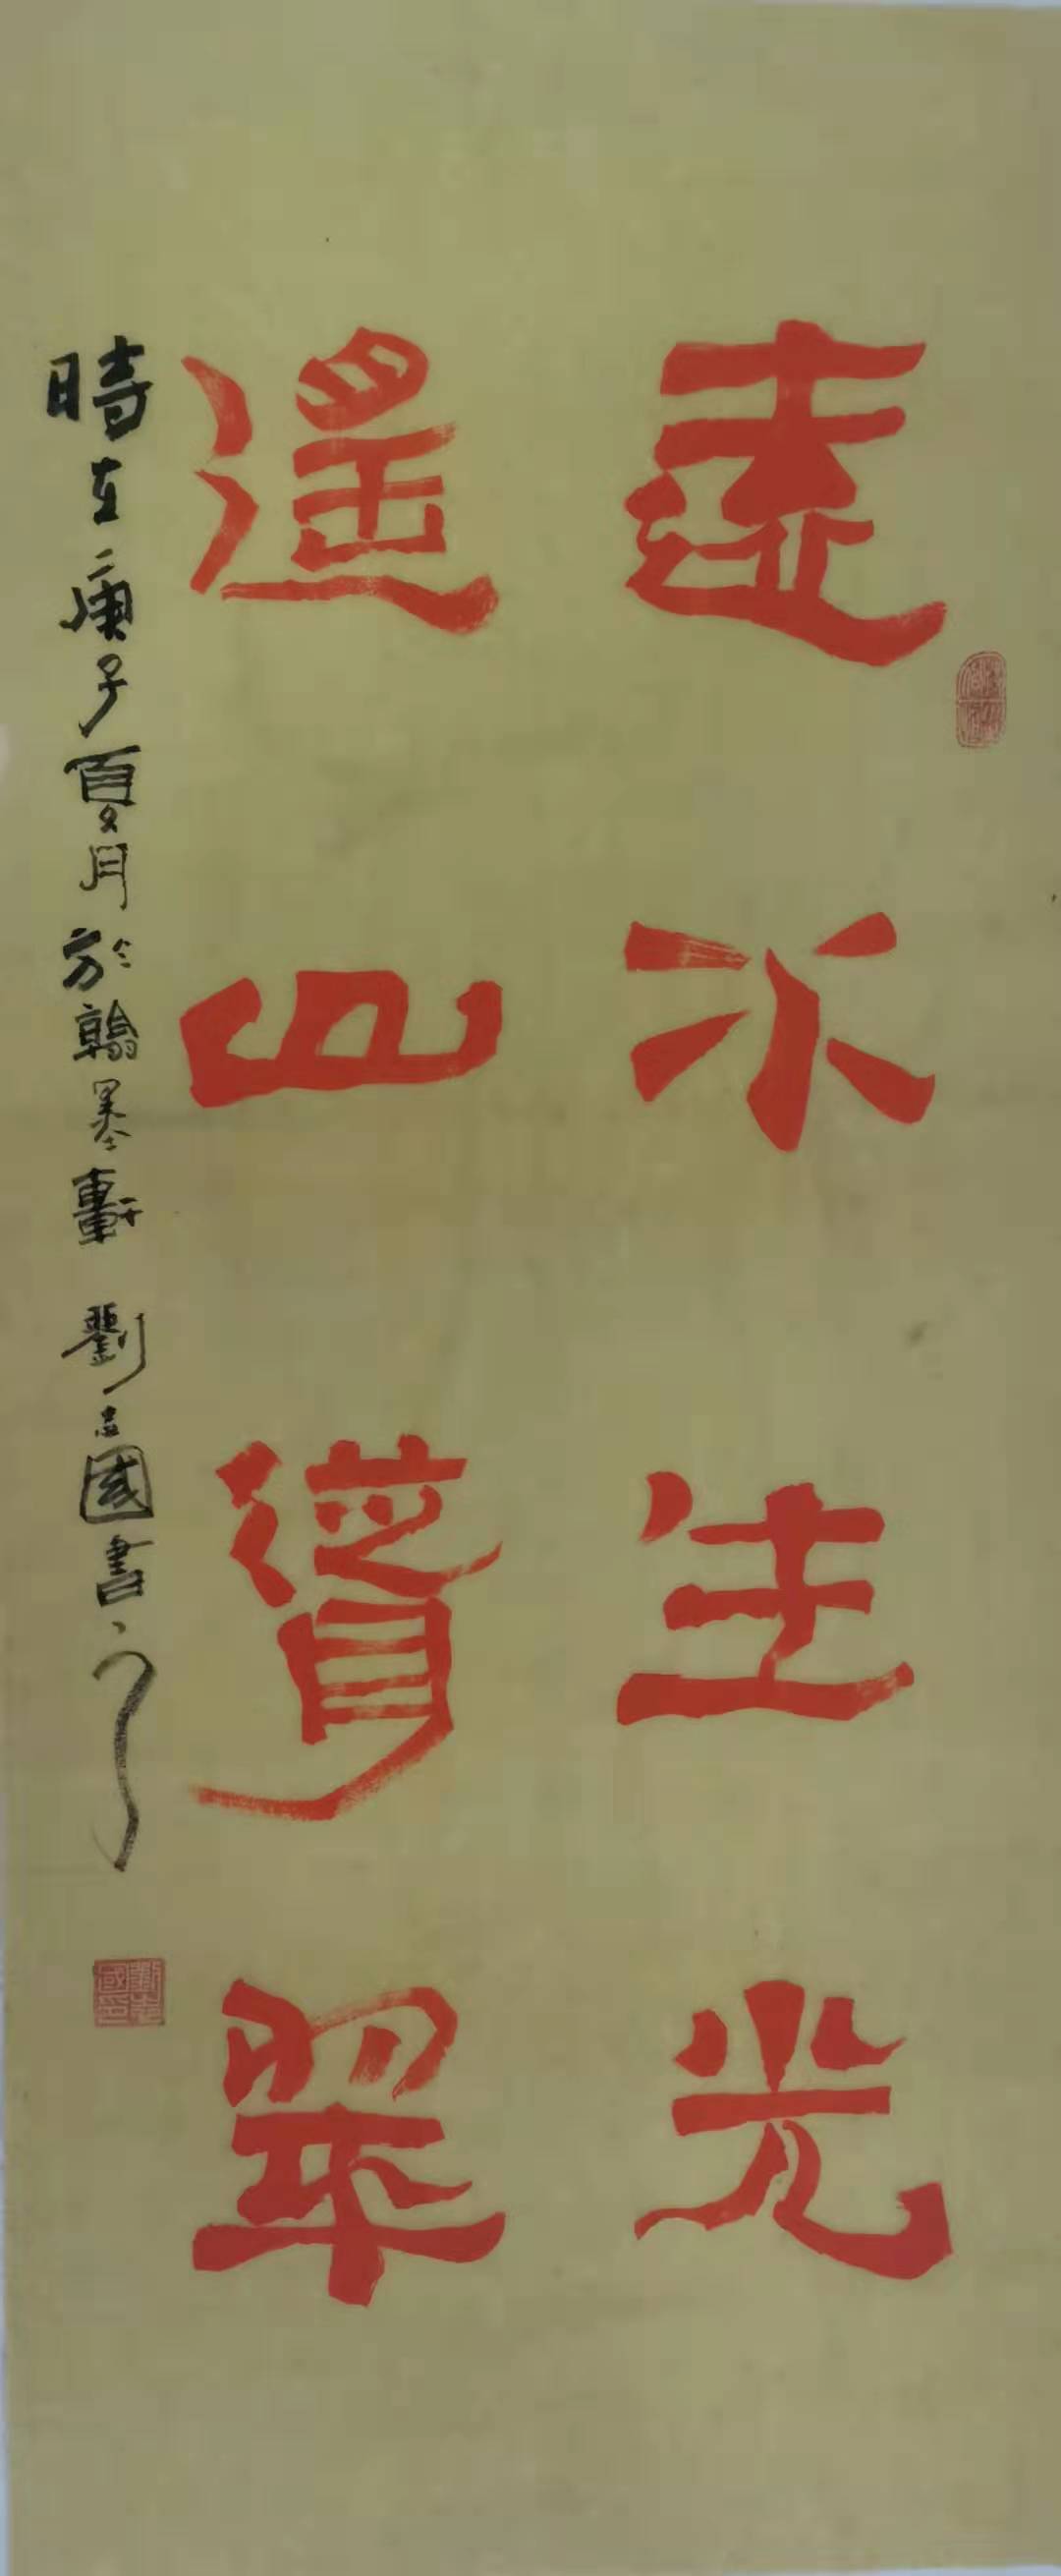 遠水生光
遙山聳翠
時在庚子夏月於翰墨軒 劉志國書